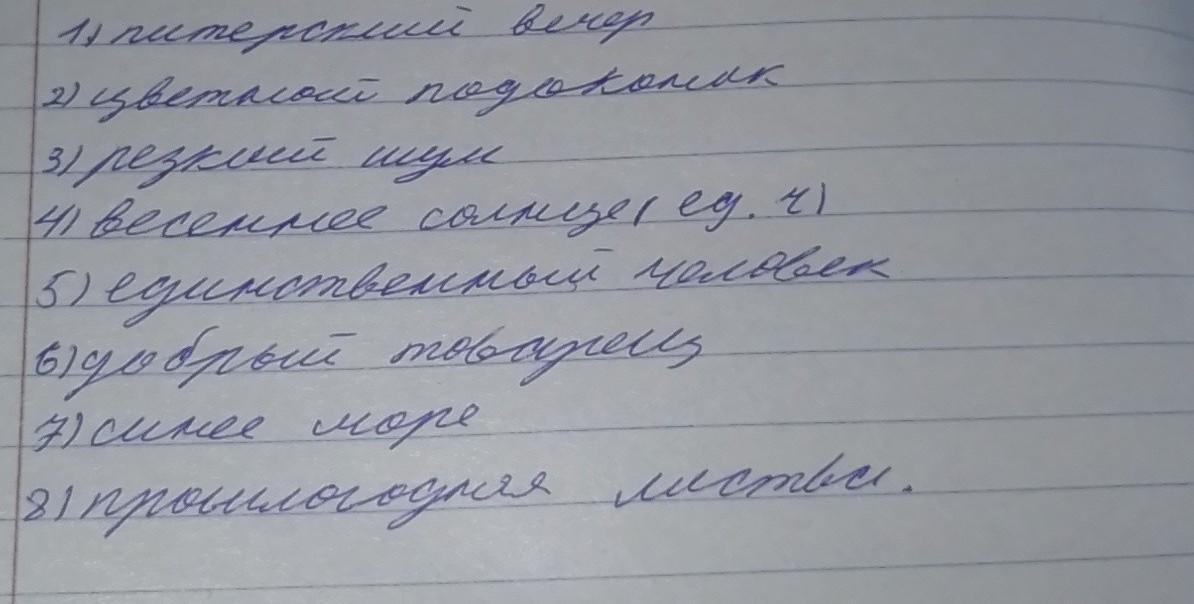 1) питерский вечер
2) цветной подоконик
3) резкий шум
4) весеннее солнце (ед. ч)
5) единственный человек
6) добрый товарищ
7) синее море
8) прошлогодняя листва.